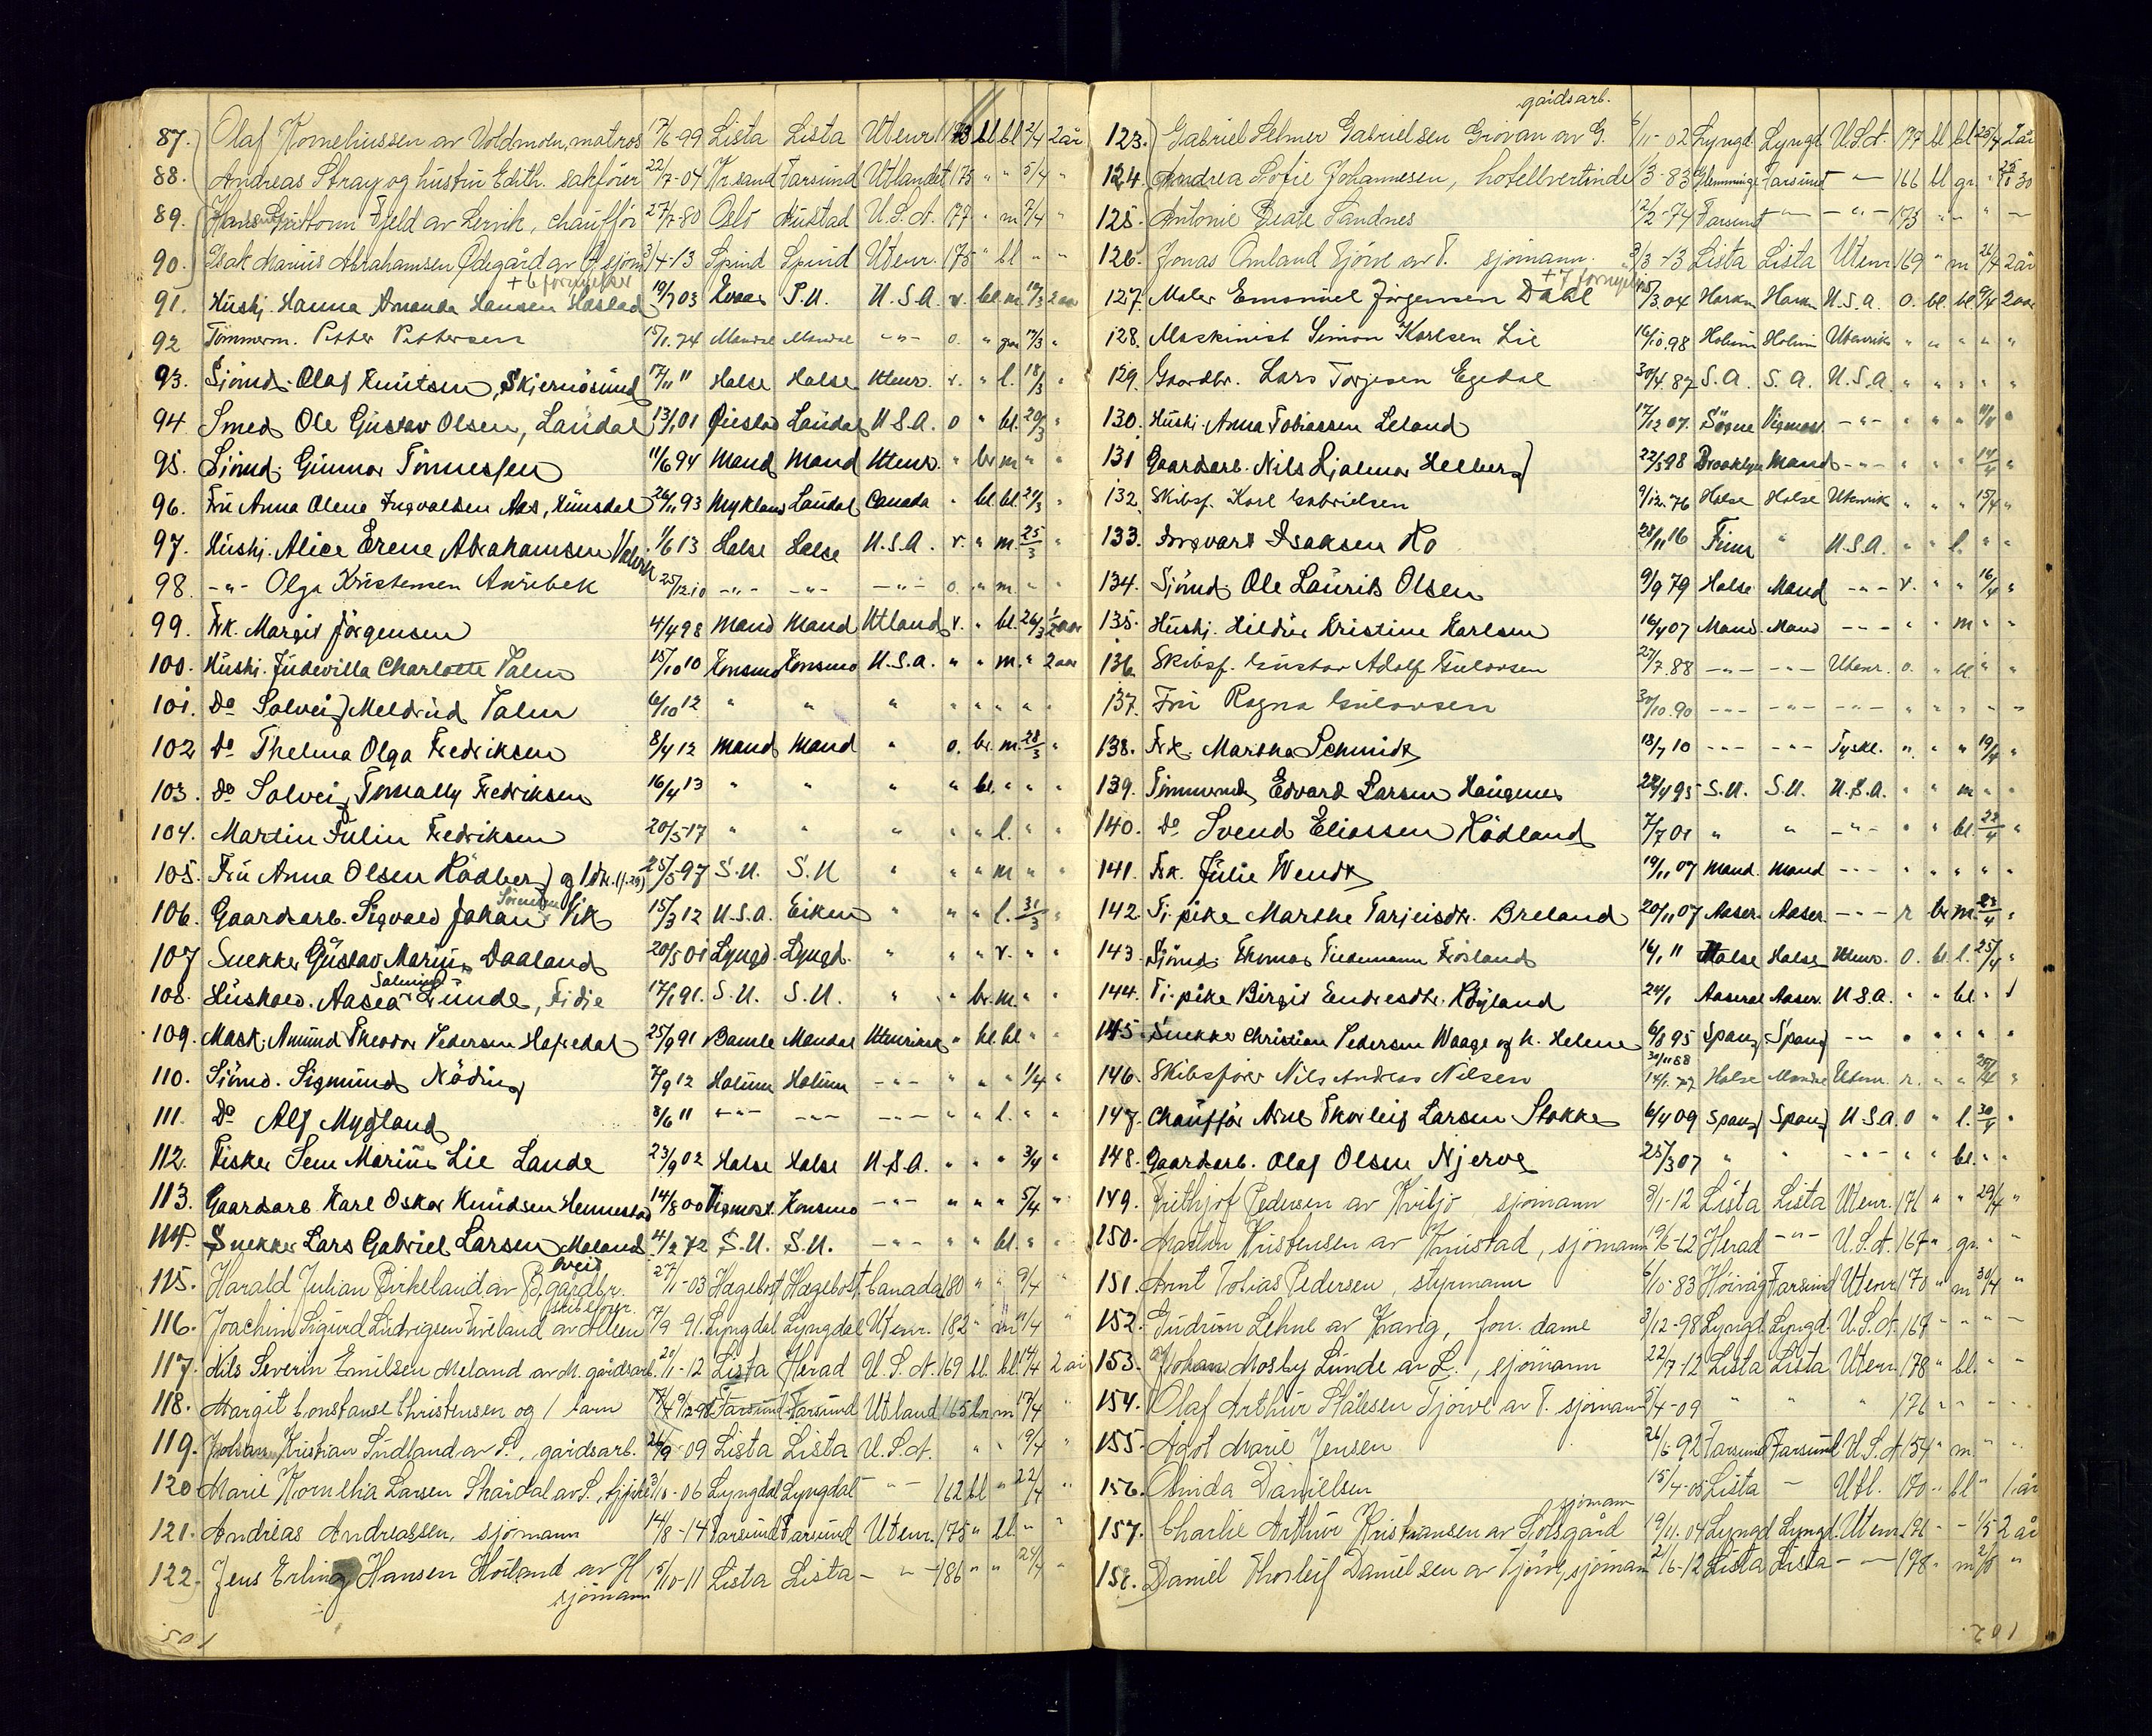 87. Olaf Korneliussen av Voldmoen, matros 17/6-99 Lista Lista Utenr. 173 bl bl 2/4 2 år
88. Andreas Stray og hustru Edith. sakfører 22/7-04 Kr.sand Farsund Utlandet 175 " " 5/4 "
89. Hans Guttorm Fjeld av Lervik, chauffør 27/7-80 Oslo U.S.A. 177 " m 7/4 "
90. Isak Marius Abrahamsen Ødegård av Ø. sjøm. 3/4-13 Spind Spind Utenr. 175 " bl " "
+ 6 fornyelser
91. Hushj. Hanna Amanda Hansen Haslad 19/7 03 Kvaas S.U. U.S.A. r. bl. m. 17/3 2 aar
92 Tømmerm. Petter Pettersen 15/1.74 Mandal Mandal -"- o. " graa 17/3 "
93. Sjömd. Olaf Knutsen, Skjernösund 17/11 11 Halse Halse Utenr. r. " l. 18/3 "
94 Smed Ole Gustav Olsen, Laudal 13/1 01 Øieslad Laudal U.S.A. o " bl. 20/3 "
95. Sjömd. Gunnar Tönnessen 11/6 94 Mand Mand Utenr. " br m " "
96. Fru Anna Olene Ingvaldsen Aas, Finsdal 26/11 93 Mykland Laudal Canada " bl. bl. 21/3 "
97. Hushj. Alice Erene Abrahamsen Valvik 1/6 13 Halse Halse U.S.A. r. " m 25/3 "
98. -"- Olga Kristensen Aurebek 25/12 10 -"- -"- -"- o. " m. " "
99. Frk. Margit Jörgensen 4/4 98 Mand Mand Utland r. " bl. 26/3 1/2 aar
100. Hushj. Judevilla Charlotte Valen 15/10 10 Konsmo Konsmo U.S.A. " " m. " 2 aar
101. Do Solveig Meldrid Valen 6/10 12 " " " " " " " "
102 Do Thelma Olga Fredriksen 8/4 12 Mand Mand " o. br. m. 28/3 "
103. Do Solveig Tomally Fredriksen 16/4 13 " " " " bl. " " "
104. Martin Julin Fredriksen 20/5 17 " " " " " l. " "
105. Fru Anna Olsen Rödberg og 1 dtr. (f. 29) 25/5 97 S.U. S.U " " " m " "
106. Gaardsarb. Sigvald Johan Sørensen Vik 15/3 12 U.S.A. Eiken " " " l. 31/3 "
107 Snekker Gustav Marius Daaland 20/5 01 Lyngd. Lyngd. " " " r. " "
108. Hushold. Aasea Salmine Lunde, Fidje 17/1 91. S.U. S.U. " " br. m. " "
109. Mask. Amund Theodor Pedersen Hafredal 25/9 91 Bamle Mandal Utenriks " bl. bl. " "
110. Sjömd. Sigmund Nöding 7/9 12 Holum Holum -"- " " " 1/4 "
111. Do Alf Mydland 8/6 11 -"- -"- -"- " " l. " "
112. Fisker Sem Marius Lie Lande 23/9 02 Halse Halse U.S.A. " " " 3/4 "
113. Gaardsarb. Karl Oskar Knudsen Hennestad 14/8 00 Vigmost. Konsmo -"- " " " 5/4 "
114. Snekker Lars Gabriel Larsen Moland 4/2 72 S.U. S.U. -"- " " bl. " "
115. Harald Julian Birkeland av B. gårdbr. 27/1-03 Hægebost Hægebost. Canada 180 " " 9/4 "
116. Joachim Sigurd Ludvigsen Tveland av Alleen skibsfører. 17/9-91. Lyngdal Lyngdal Utenr. 182 " m 11/4 "
117. Nils Severin Emilsen Meland av M. gårdsarb. 20/11-12 Lista Herad U.S.A. 169 bl. bl. 14/4 2 år
118. Margit Constanse Christensen og 1 barn Farsund Farsund Utland 165 br m 17/4
119. Johan Kristian Sudland av S., gårdsarb. 26/9-09 Lista Lista U.S.A. " " 19/4 "
120 Marie Kornelia Larsen Skårdal av S., 3/8-06 Lyngdal Lyngdal -"- 162 bl " 22/4 "
121. Andreas Andreassen, sjømann 14/8-14 Farsund Farsund Utenr. 175 " bl. " "
122. Jens Erling Hansen Høiland av H 5/10-11 Lista Lista -"- 186 " " 24/4 "
sjømann
501
gårdsarb.
123. Gabriel Selmer Gabrielsen Grøvan av G. 9/11-02 Lyngd. Lyngd. U.S.A. 177 bl bl. 25/4 2 år
124. Andrea Sofie Johannesen, hotellvertinde 1/3-83 Glemminge Farsund -"- 166 bl gr.
125. Antonie Beate Sandnes 12/2-74 Farsund -"- -"- 173 " " " "
126. Jonas Omland Tjörve av T. sjömann. 3/3-13 Lista Lista Utenr. 169 " m 26/4 2 år
+ 7 fornyelser
127. Maler Emanuel Jørgensen Dahl 15/3.04 Harkm Harkm U.S.A. o. bl. bl. 9/4 2 aar
128. Maskinist Simon Karlsen Lie 16/10.98 Holum Holum Utenriks " " " " "
129. Gaardbr. Lars Torjesen Egedal 30/4.87 S.A. S.A. U.S.A. " " " " "
130. Hushj. Anna Tobiassen Leland 17/12 07. Søgne Vigmost. -"- " " " 11/4 "
131 Gaardsarb. Nils Hjalmar Helberg 22/5 98 Brooklyn Mand -"- " " " 14/4 "
132 Skibsf. Karl Gabrielsen 9/12.76 Halse Halse Utenrik " " " 15/4 "
133. Ingvart Isaksen Ho 28/11 16 Time " U.S.A. " " l. " "
134. Sjömd. Ole Laurits Olsen 9/9 79 Halse Mand -"- r. " " 16/4 "
135. Hushj. Hildur Kristine Karlsen 16/4 07 Mand. Mand -"- " " m " "
136. Skibsf. Gustav Adolf Gulovsen 25/7.88 -"- -"- Utenr. o. " bl. " "
137. Fru Ragna Gulovsen 30/10.90 -"- -"- -"- " " " " "
138. Frk. Martha Schmidt 18/7 10 -"- -"- Tyskl. " " " 19/4 "
139. Tömmermd. Edvard Larsen Haugenes 22/4 95 S.U. S.U. U.S.A. " " m " "
140. Do Svend Eliassen Rödland 7/7 01 " " -"- " " bl. 22/4 "
141. Frk. Julie Wendt 19/11 07 Mand. Mand -"- " " " " "
142 Tj.pike Marthe Tarjeisdtr. Breland 20/11 07 Aaser. Aaser. -"- r br m. 23/4 "
143. Sjömd. Thomas Tiedemann Frösland 16/1 11 Halse Halse Utenr. o. bl. l. 25/4 "
144. Tj.pike Birgit Endresdtr. Röyland 24/1 Aaseral Aaser. U.S.A. " " bl. "
145. Snekker Christian Pedersen Waage og h. Helene 6/8 95 Spang. Spang -"- " " " " "
30/11 88
146. Skibsfører Nils Andreas Nilsen 14/1.77 Halse Mandal Utenr. r. " " "
147. Chauffør Arne Thorleif Larsen Stokke 6/4 09 Spang Spang U.S.A. o " l. 30/4 "
148. Gaardsarb. Olaf Olsen Njerve 25/3 07 " " -"- " " bl. " "
149. Frithjof Pedersen av Kviljo, sjömann 3/1-12 Lista Lista Utenr. 176 " " 29/4 "
150. Martin Kristensen av Knivstad, sjömann Herad -"- U.S.A. 167 " gr. " "
151. Arnt Tobias Pedersen, styrmann 6/10-83 Høivåg Farsund Utenr. 170 " m 30/4 "
152. Gudrun Lehne av Kvavig, forr. dame 3/12-98 Lyngd. Lyngd. U.S.A. 169 " " " "
153. Johan Mosby Lunde av L., sjømann 22/7-12 Lista Lista Utenr. 178 " bl. " "
154. Olaf Arthur Stålesen Tjörve av T. sjømann 5/4-09 " " " 176 " " " "
155. Agot Marie Jensen 26/6 92 Farsund Farsund U.S.A 154 " m. " "
156. Aminda Danielsen 15/4-05 Lista " Utl. 170 " bl " 1 år
sjömann
157. Charlie Arthur Kristiansen av Solsgård 19/11.04 Lyngd. Lyngd. Utenr. 176 " " 1/5 2 år
158. Daniel Thorleif Danielsen av Tjörve, sjömann 21/6-12 Lista Lista -"- 178 " m "